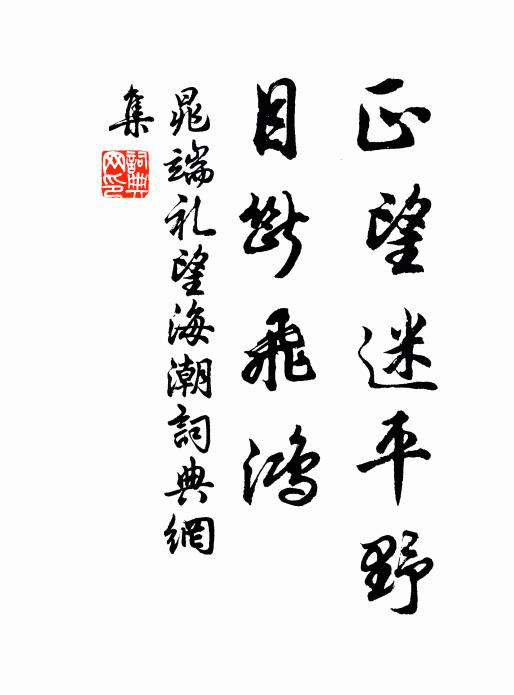 正望迷平野
目断飛鴻
晁端礼望海潮詞典網
集
詞典網印